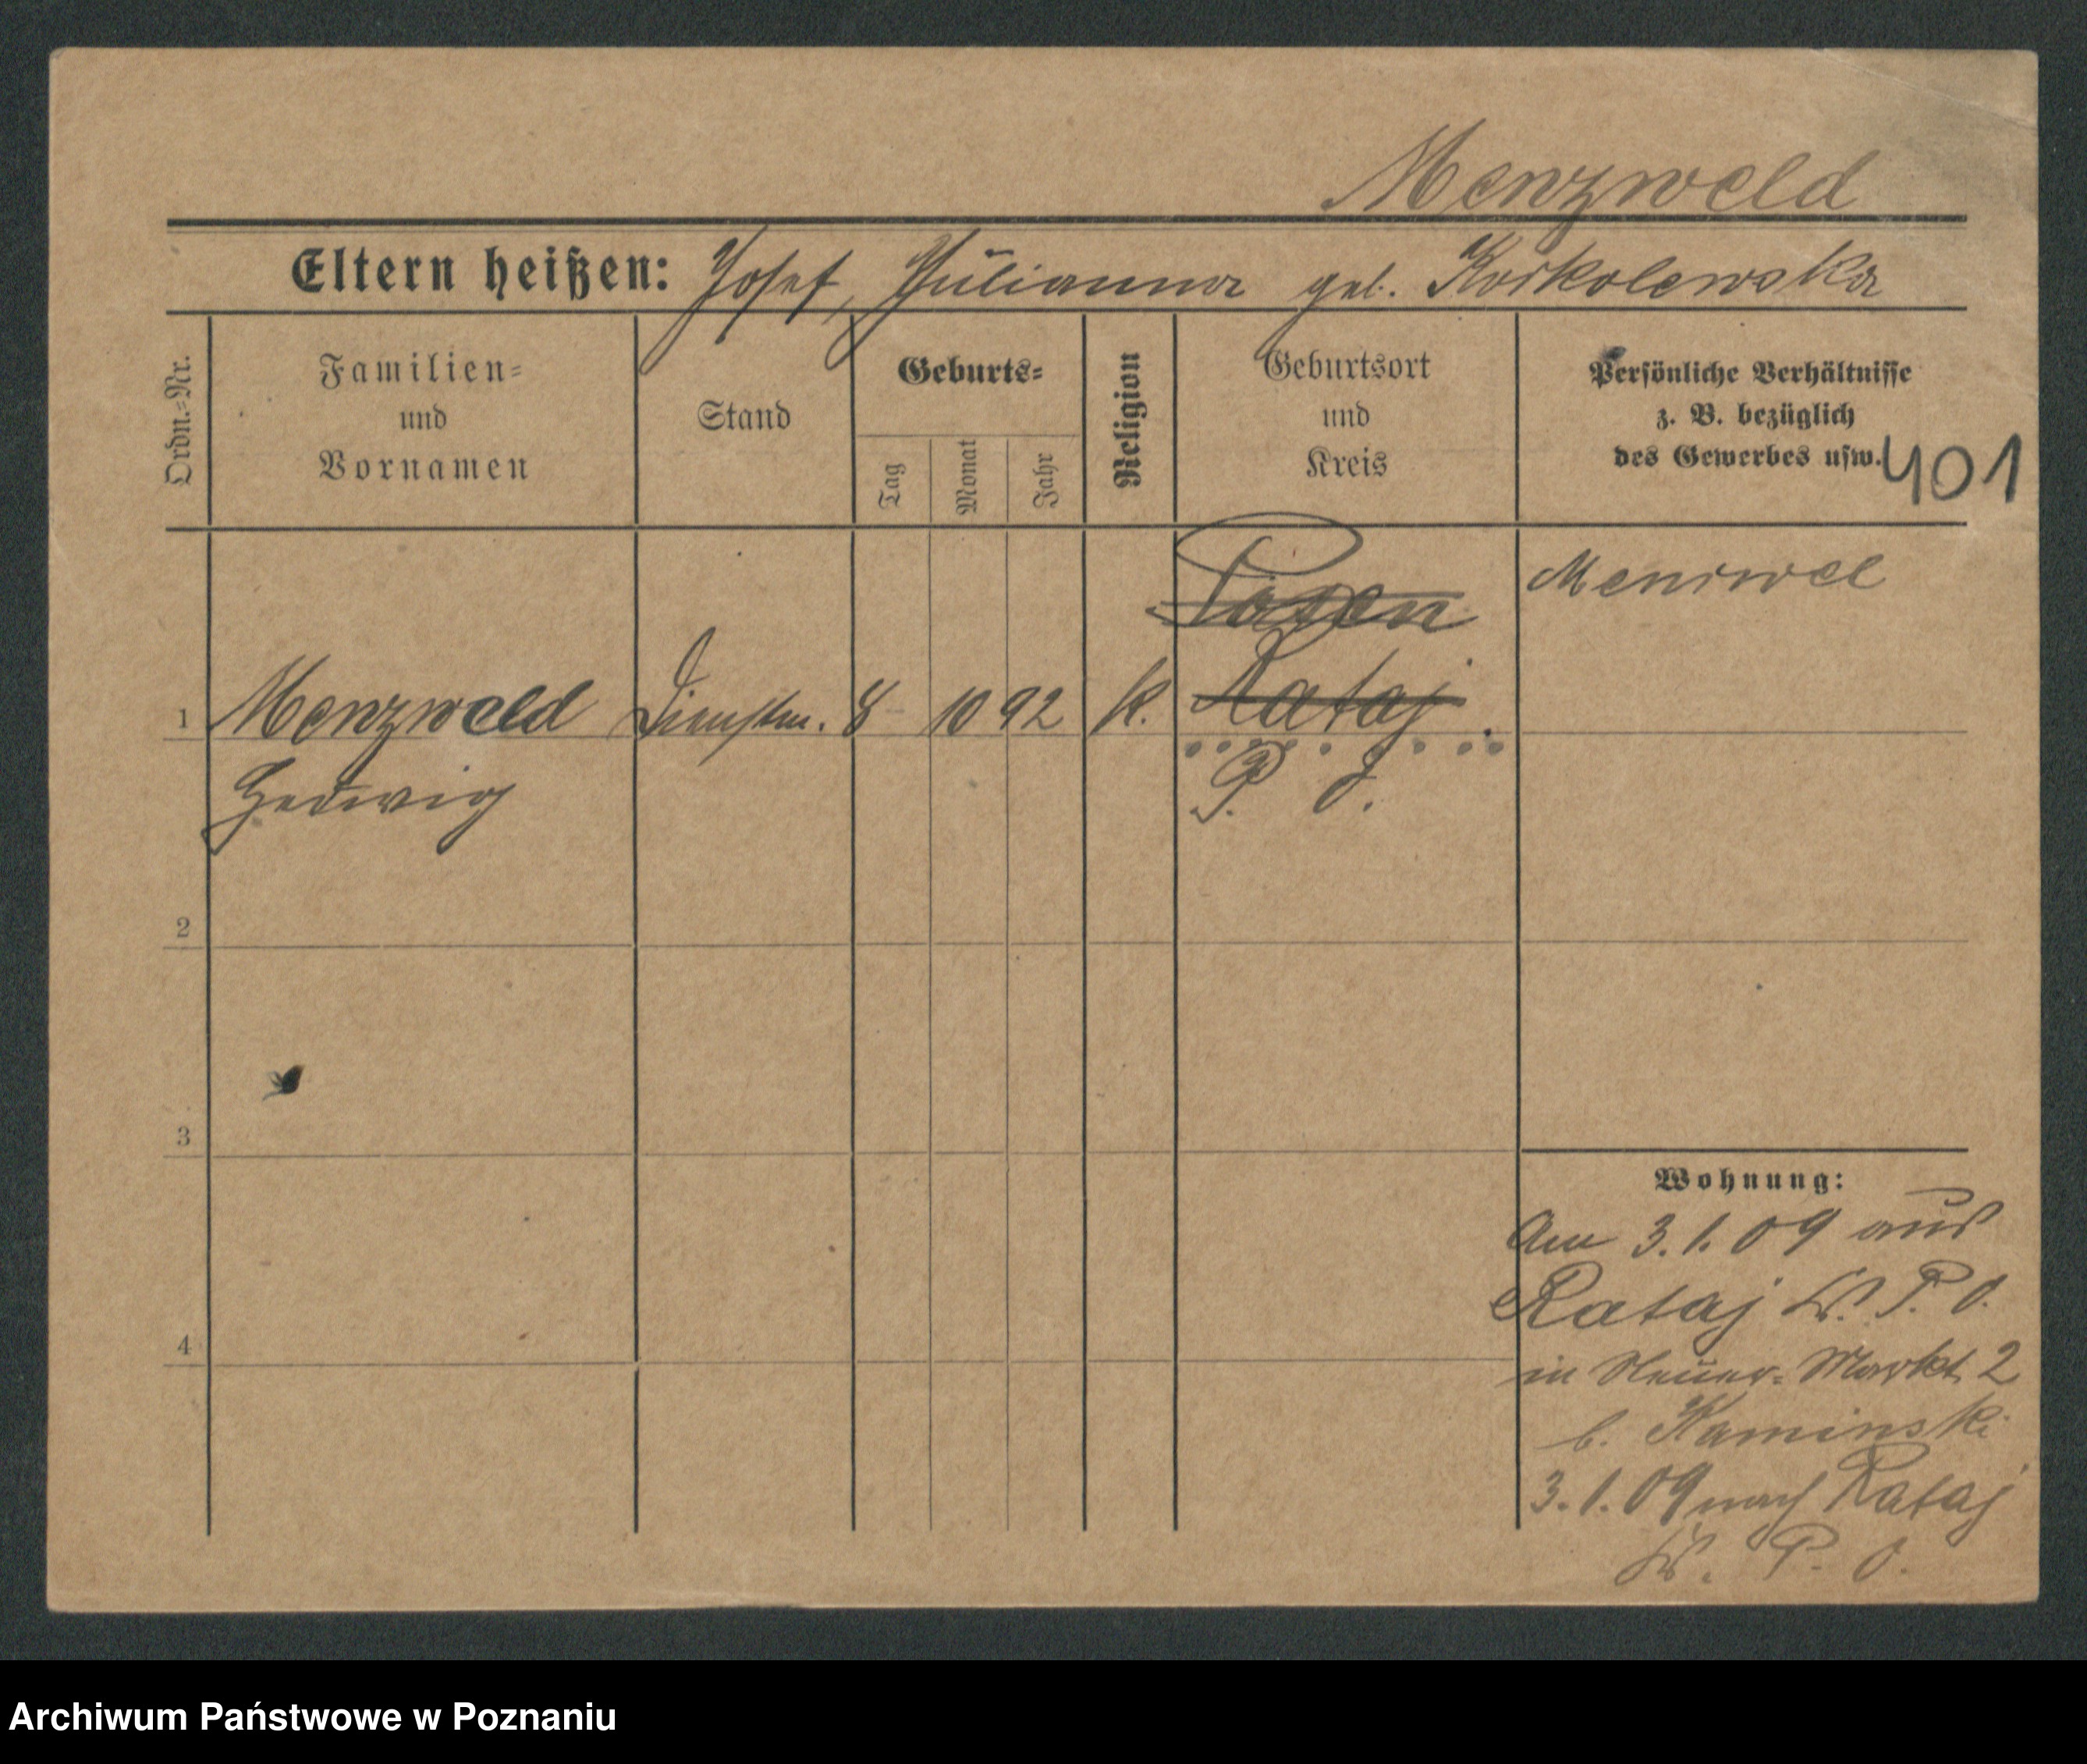 Menzweld
Eltern heißen: Josef, Julianna geb. Koikolewska
Ordn.-Nr.
Familien-
und
Vornamen
Stand
Geburts-
Tag
Monat
Jahr
Religion
Geburtsort
und
Kreis
Persönliche Verhältnisse
z. B. bezüglich
des Gewerbes usw.
401
Posen
Meniwel
1 Menzweld Dienstm. 8 10 92 k. Rataj
Hedwig P. O.
2
3
4
Wohnung:
Am 3.1.09 aus
Rataj Kr. P. O.
in Neuer-Markt 2
b. Kaminski
3.1.09 nach Rataj
Kr. P. O.
Archiwum Państwowe w Poznaniu